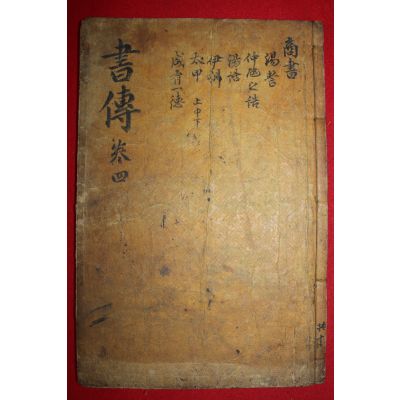 商書
湯誓
仲虺之誥
湯誥
伊訓
太甲 上中下
咸有一德
書傳 卷四